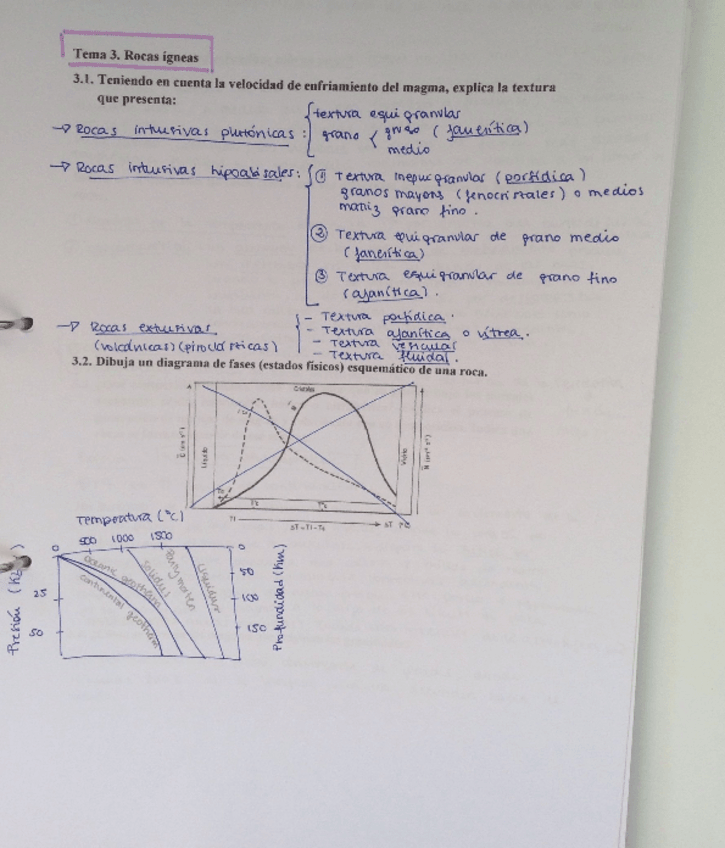 Tema 3. Rocas ígneas
3.1. Teniendo en cuenta la velocidad de enfriamiento del magma, explica la textura
que presenta:
→ Rocas intrusivas plutónicas: textura equigranular
grano grueso (fanerítica)
medio
→ Rocas intrusivas hipoabisales: ① Textura inequigranular (porfídica)
granos mayores (fenocristales) o medios
matriz grano fino.
② Textura equigranular de grano medio
(fanerítica)
③ Textura equigranular de grano fino
(afanítica).
→ Rocas extrusivas
(volcánicas)(piroclásticas)
- Textura porfídica.
- Textura afanítica o vítrea.
- Textura vesicular
- Textura fluidal.
3.2. Dibuja un diagrama de fases (estados físicos) esquemático de una roca.
Líquido
Vidrio
Temperatura (°C)
500 1000 1500
0
0
Presión
25
50
50
100
150
Profundidad (Km)
Oceanic geotherm
continental geotherm
Solidus
Party molten
Liquidus